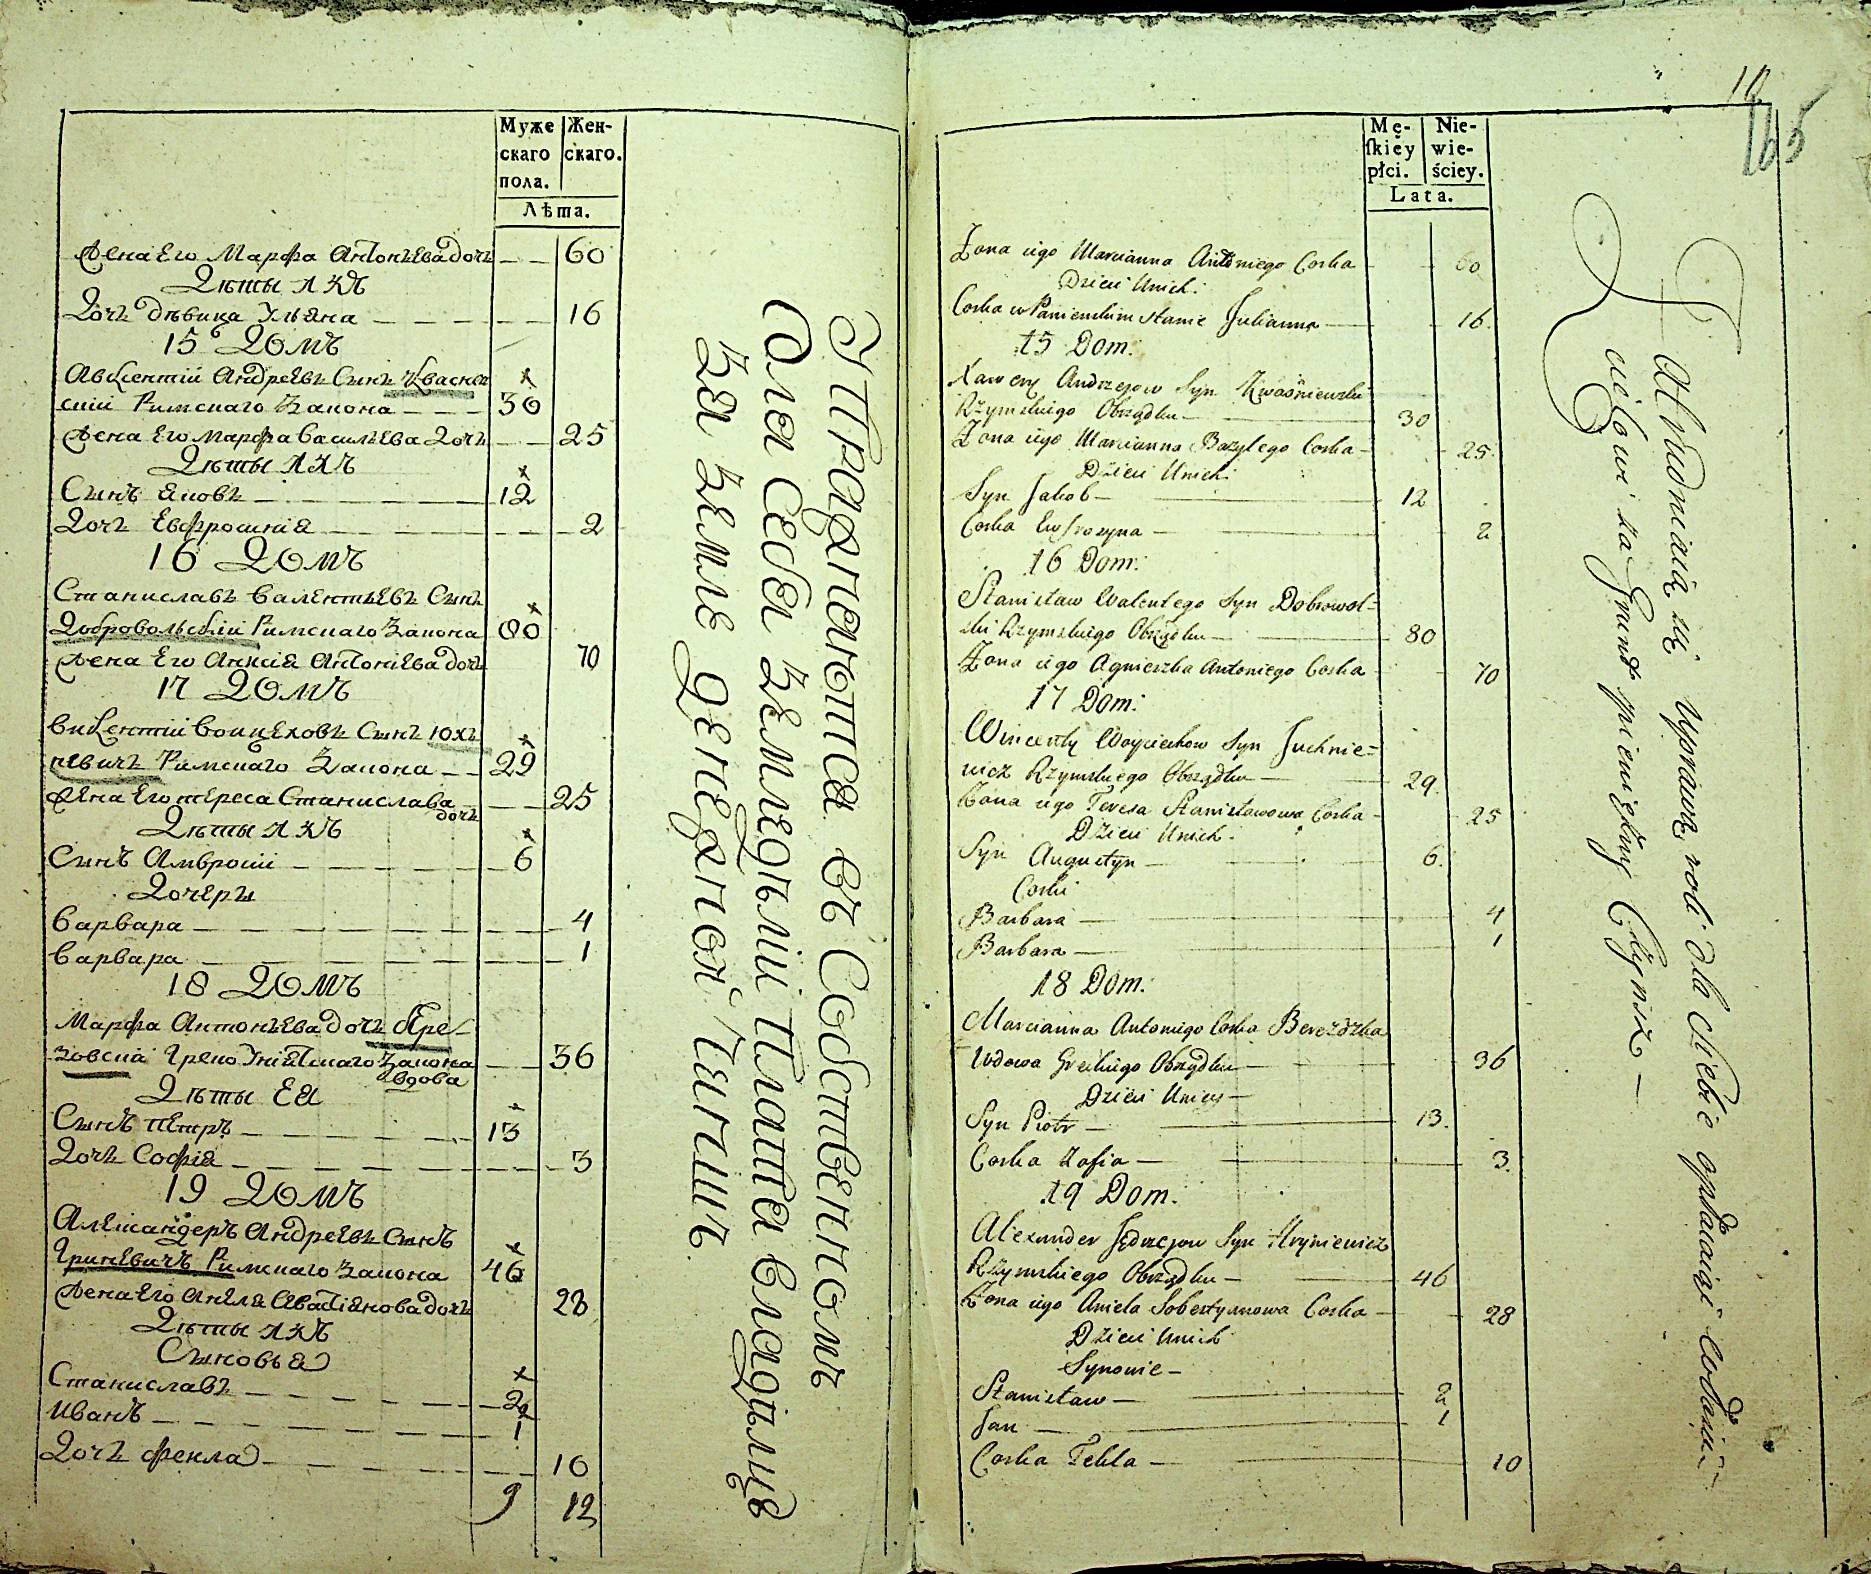 Муже
скаго
пола.
Жен-
скаго.
Лѣта.
Жена Его Марфа Антонъева дочь — — 60
Дѣты ихъ
Дочь дѣвица Ульяна — — — 16
15 Домъ
Авкентий Андреевъ Сынъ Квасней
ский Римскаго Закона — — — 30
Жена Его Марфа Василъева Дочь — — 25
Дѣты ихъ
Сынъ Яковъ — — — 12
Дочь Евфросиния — — — 2
16 Домъ
Станиславъ Валентъевъ Сынъ
Добровольский Римскаго Закона 80
Жена Его Анисия Антониева дочь 70
17 Домъ
Викентий Войцеховъ Сынъ Юхъ
невичъ Римскаго Закона — — 29
Жена Его Тереса Станислава дочь — — 25
Дѣты ихъ
Сынъ Амвросий — — — 6
Дочери
Варвара — — — 4
Варвара — — — 1
18 Домъ
Марфа Антонъева дочь Бере-
зовская Греко Униятскаго Закона вдова — — 36
Дѣты Ея
Сынъ Петръ — — — 13
Дочь София — — — 3
19 Домъ
Александеръ Андреевъ Сынъ
Гриневичъ Римскаго Закона 46
Жена Его Анеля Севастиянова дочь 28
Дѣты ихъ
Сыновья
Станиславъ — — — 2
Иванъ — — — 1
Дочь Фекла — — — 10
9 12
Упражняютца въ Собственномъ
Для Себя Земледѣлии Платя Владѣлце
За Землю Денежной Чиншъ
10
165
Mę-
ſkiéy
płci.
Nie-
wie-
ściey.
Lata.
Zona iego Marcianna Antoniego Corka — 60
Dzieci Unich:
Corka w Panienskim Stanie Julianna — 16.
15 Dom:
Xawery Andrzejow Syn Kwaśniewski
Rzymskiego Obrządku — 30
Zona iego Marcianna Bazylego Corka — 25.
Dzieci Unich:
Syn Jakob — 12
Corka Eufrozyna — 2
16 Dom:
Stanisław Walentego Syn Dobrowol=
ski Rzymskiego Obrządku — 80
Zona iego Agnieszka Antoniego Corka — 70
17 Dom:
Wincenty Woyciechow Syn Juchnie=
wicz Rzymskiego Obrządku — 29.
Zona iego Teresa Stanisławowa Corka — 25
Dzieci Unich:
Syn Augustyn — 6.
Corki
Barbara — 4
Barbara — 1
18 Dom:
Marcianna Antoniego Corka Berezozka
Wdowa Greckiego Obrządku — 36
Dzieci Unicy —
Syn Piotr — 13.
Corka Zofia — 3.
19 Dom.
Alexander Jędrzejow Syn Hryniewicz
Rzymskiego Obrządku — 46
Zona iego Aniela Sobestyanowa Corka — 28
Dzieci Unich
Synowie —
Stanisław — 2
Jan — 1
Corka Tekla — 10
Zatrudniaią się Uprawą roli dla Siebie opłacaiąc Właści:
cielowi za Grunt pieniężny Czynsz —